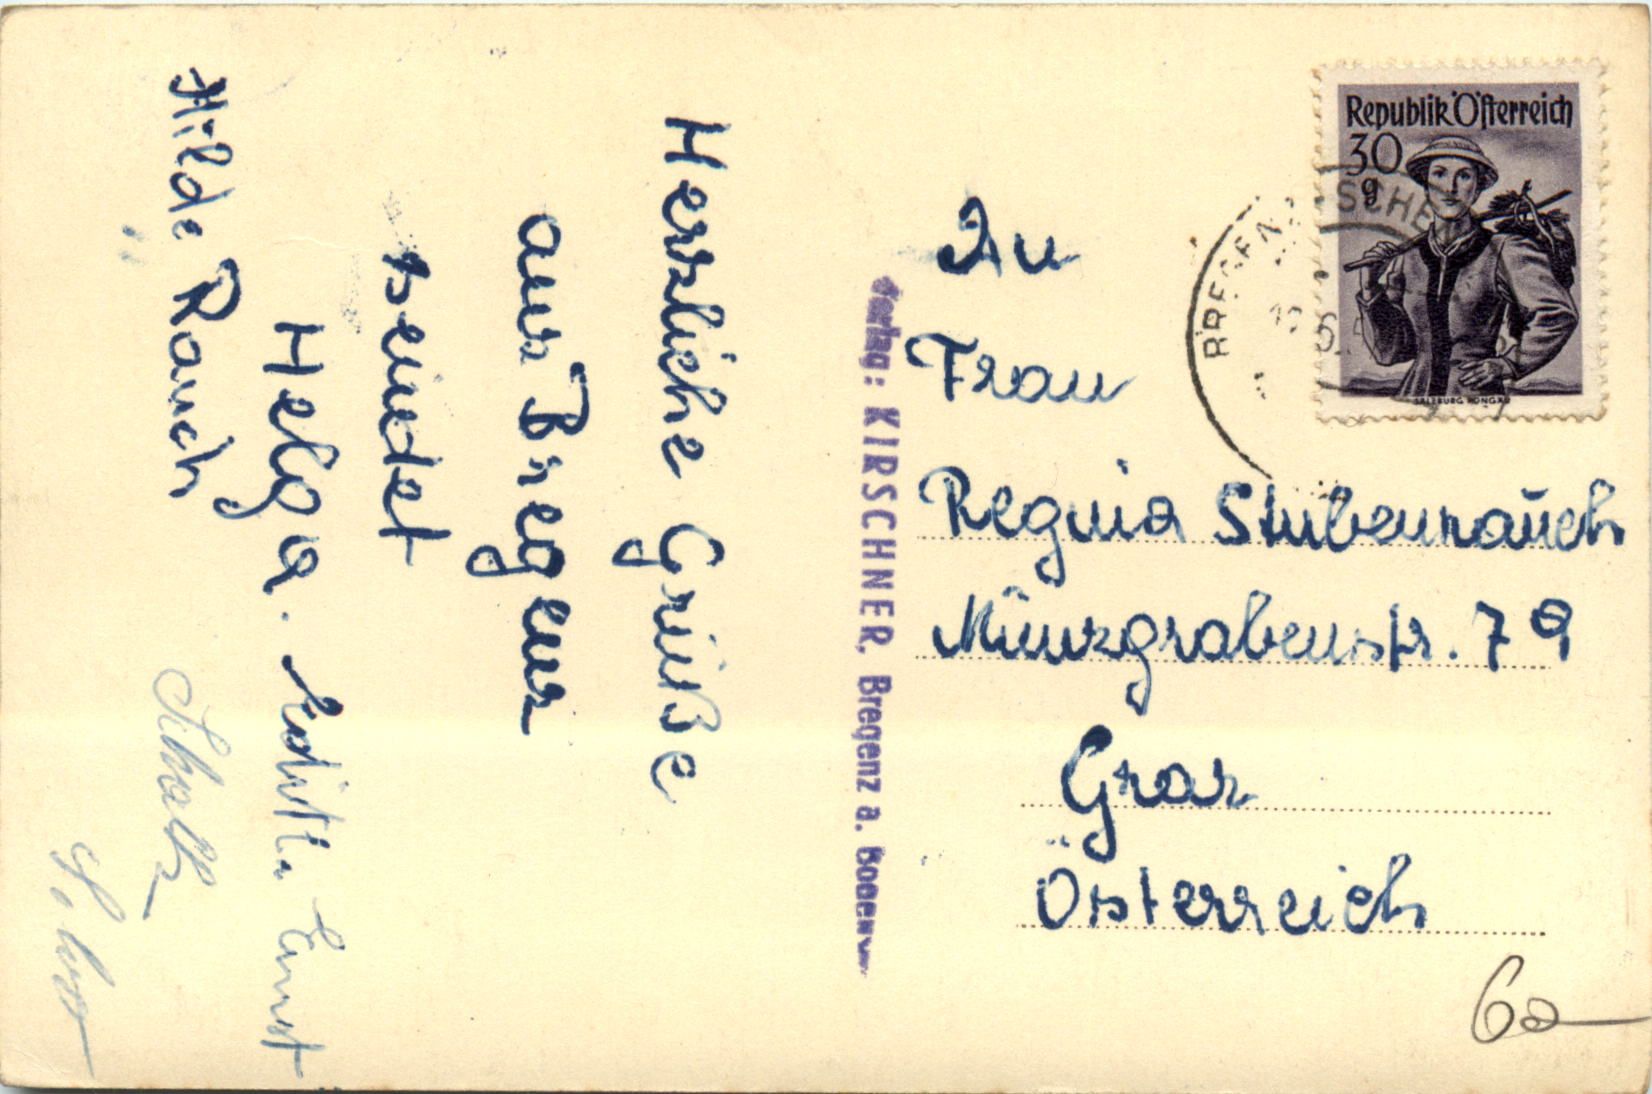 Herzliche Grüße
aus Bregenz
sendet
Helga. Edith. Ernst
Hilde Rauch
Verlag: KIRSCHNER, Bregenz a. Bodensee
Republik Österreich
30
g
SALZBURG PONGAU
BREGENZ
An
Frau
Regina Stubenrauch
Münzgrabenstr. 79
Graz
Österreich